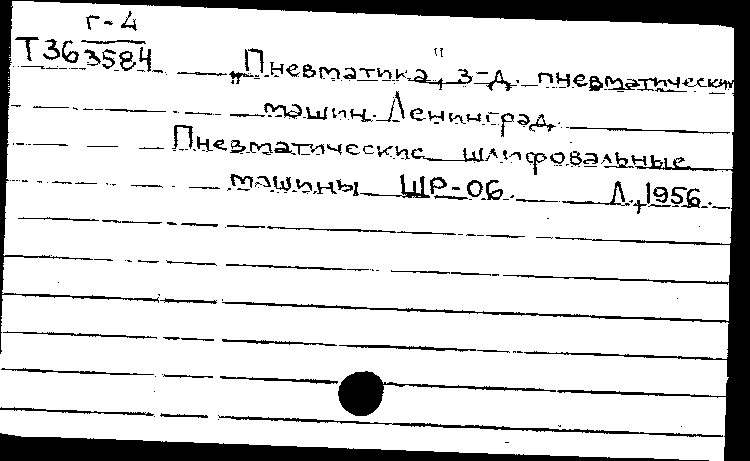 Г-4
Т36 3584
„Пневматика", з-д. пневматических
машин. Ленинград.
Пневматические шлифовальные
машины ШР-06. Л., 1956.